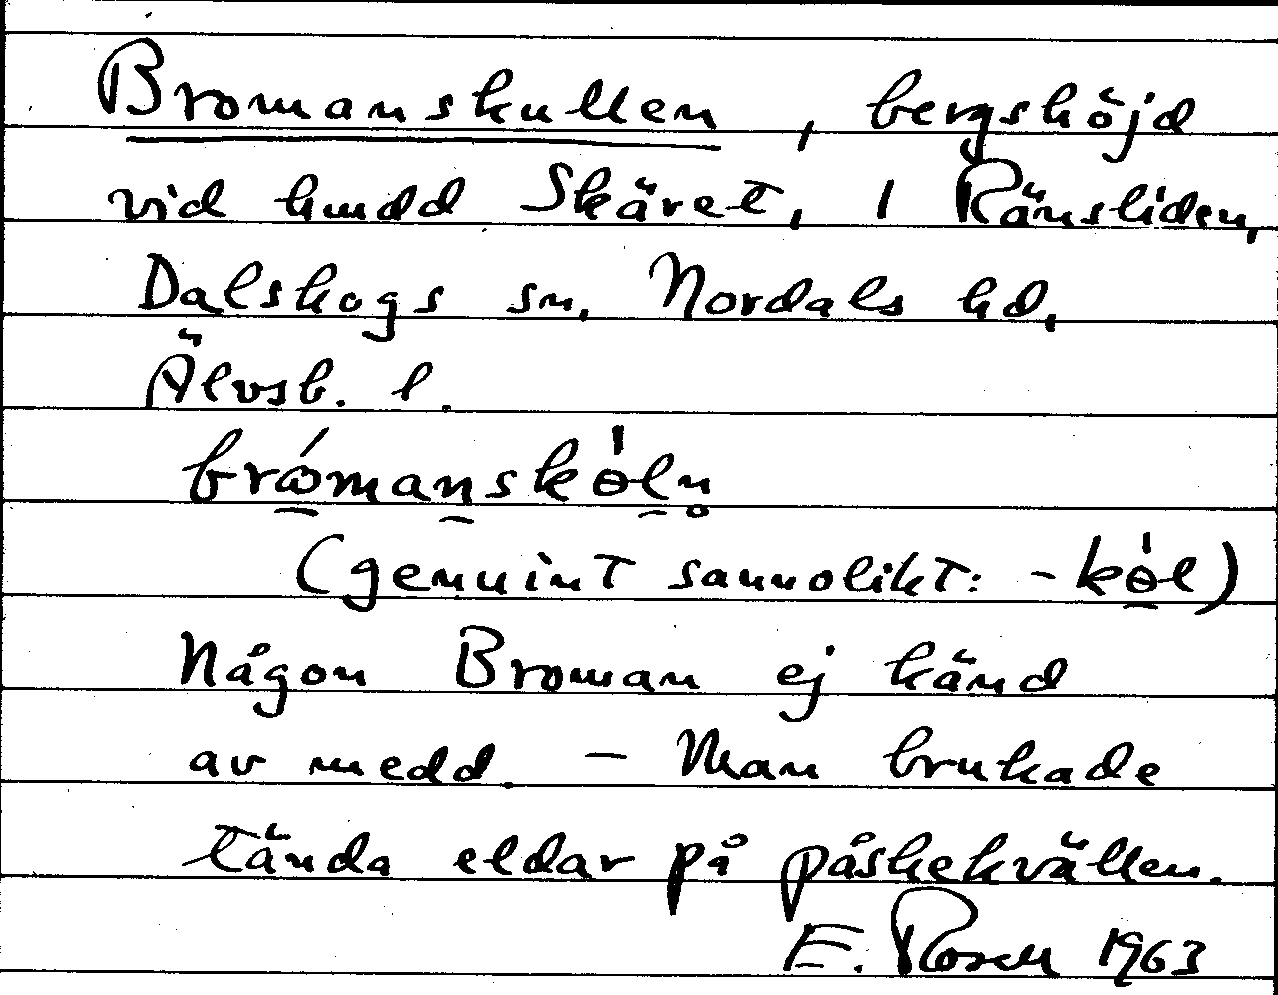 Bromanskullen, bergshöjd
vid hmdd Skäret, 1 Ränsliden,
Dalskogs sn, Nordals hd,
Älvsb. l.
(genuint sannolikt:
Någon Broman ej känd
av medd. – Man brukade
tända eldar på påskekvällen.
E. Rosell 1963